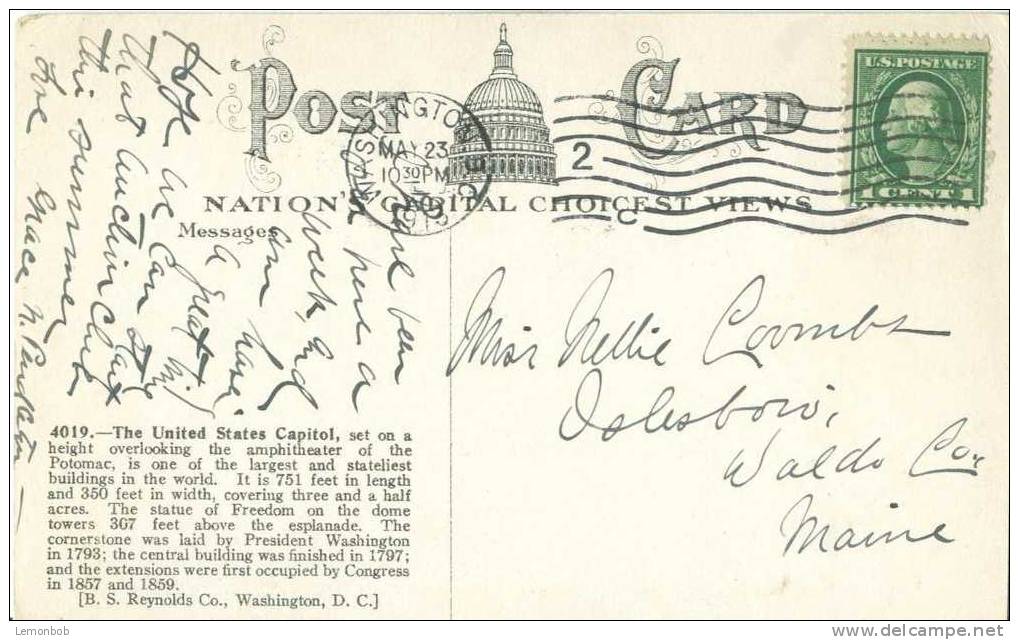 POST CARD
WASHINGTON D.C.
MAY 23
10 30 PM
1913
2
C
U.S. POSTAGE
1 CENT 1
NATION'S CAPITAL CHOICEST VIEWS
Messages
Have been
here a
week, and
am having
a great
Hope we can
that auction
this summer
Love Grace N. Pendleton
Miss Nellie Coombs
Islesboro,
Waldo Co.,
Maine
4019.—The United States Capitol, set on a
height overlooking the amphitheater of the
Potomac, is one of the largest and stateliest
buildings in the world. It is 751 feet in length
and 350 feet in width, covering three and a half
acres. The statue of Freedom on the dome
towers 307 feet above the esplanade. The
cornerstone was laid by President Washington
in 1793; the central building was finished in 1797;
and the extensions were first occupied by Congress
in 1857 and 1859.
[B. S. Reynolds Co., Washington, D. C.]
Lemonbob
www.delcampe.net